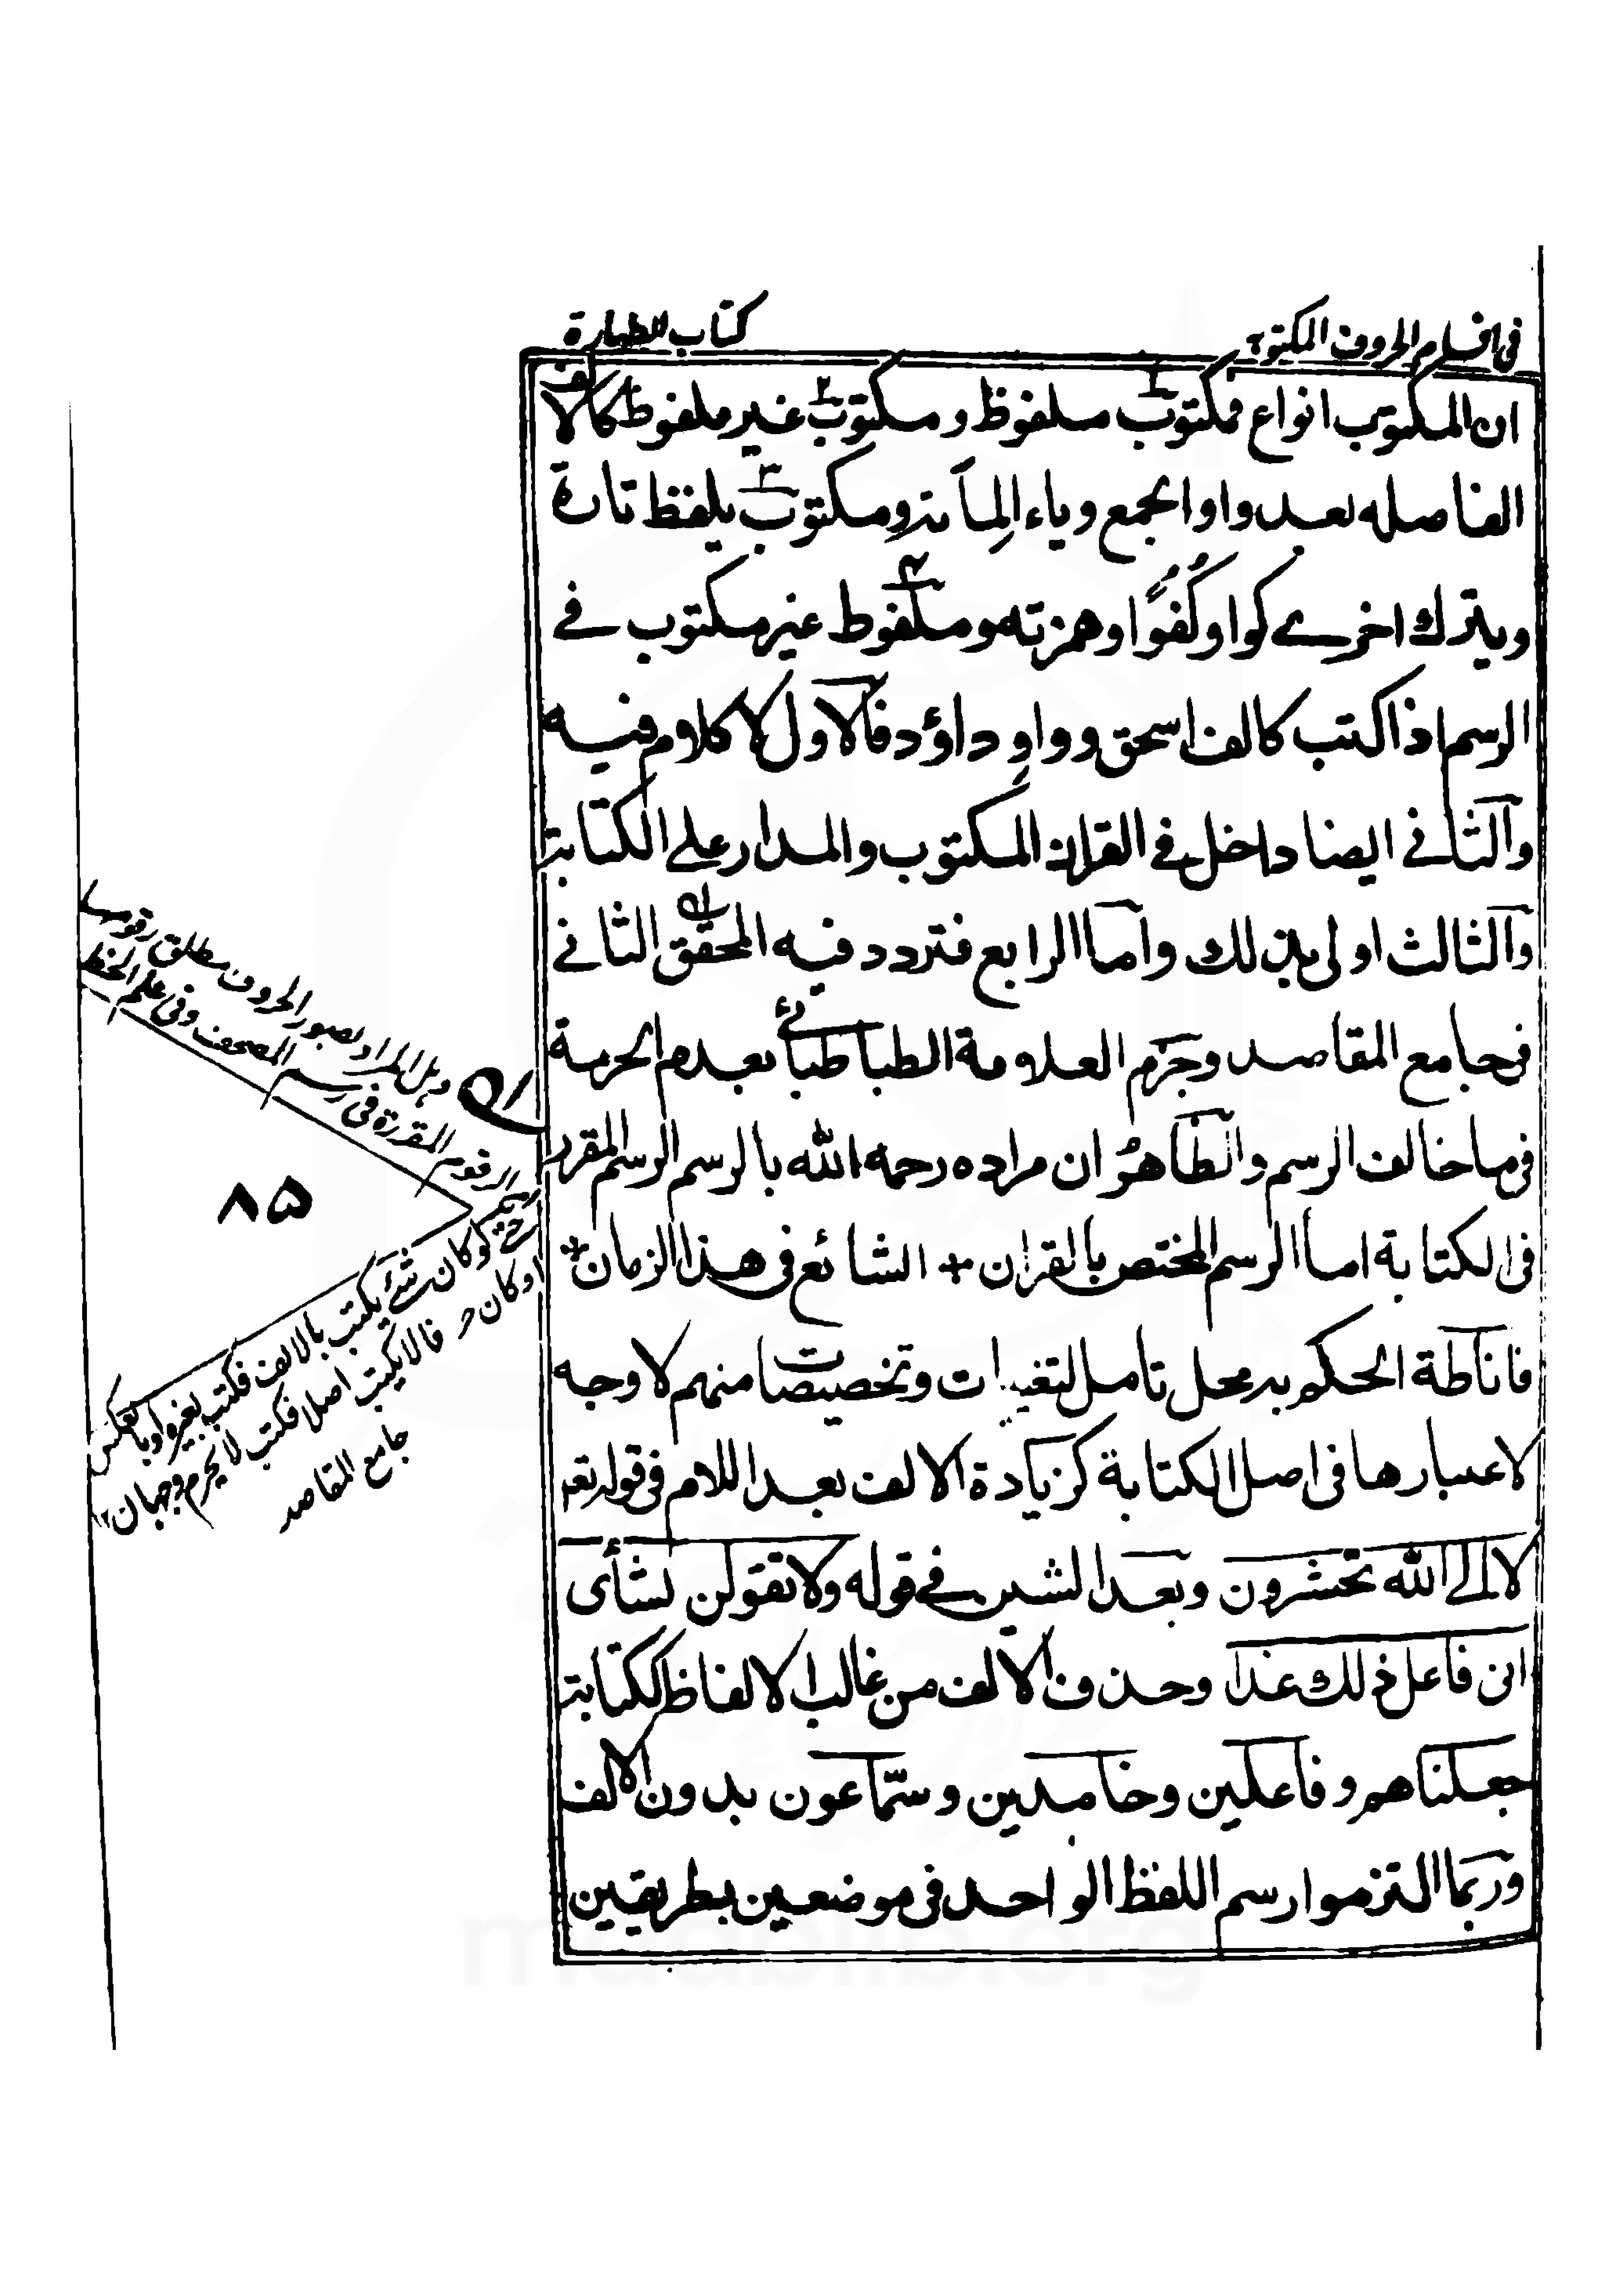 فی اقسام الحروف المکتوبۃ
کتاب الطهارة
ان المکتوب انواع فمکتوب ملفوظ و مکتوب غیر ملفوظ کالالف
الفاصله بعد واو الجمع ویاء المأیة ومکتوب یلفظ تارة
ویترك اخرے کواو کُفُوًا وهمزته وملفوظ غیر مکتوب فے
الرسم اذا کتب کالف اسحق وواو داؤد فالاول لا کلام فیه
والثانے ایضا داخل فے القران المکتوب والمدار علے الکتابة
والثالث اولی بذلك واما الرابع فتردد فیه المحقق الثانے
فی جامع المقاصد وجزم العلامة الطباطبائے بعدم الحرمة
فی ما خالف الرسم والظاهر ان مراده رحمه الله بالرسم الرسم المقرر
فی الکتابة اما الرسم المختص بالقران * الشائع فی هذا الزمان *
فاناطة الحکم به محل تامل لتغییرات وتخصیصات منهم لا وجه
لاعتبارها فی اصل الکتابة کزیادة الالف بعد اللام فی قوله تعه
لا الی الله تحشرون وبعد الشین فے قوله ولا تقولن لشأی
انی فاعل ذلك غدا وحذف الالف من غالب الالفاظ ککتابة
جعلناهم و فاعلین وخامدین وسمّاعون بدون الالف
وربما التزموا رسم اللفظ الواحد فی موضعین بطریقین
وهل المراد بصور الحروف مطلق رقومها
المقررة فی رسم المصحف وفی علم الخط
الرقوم
حتی لو کان شئے یکتب بالالف فکتب بغیر واو بالعکس
او کان فالا یکتب اصلا فکتب لا یحرم وجهان ١٢
جامع المقاصد
٨۵